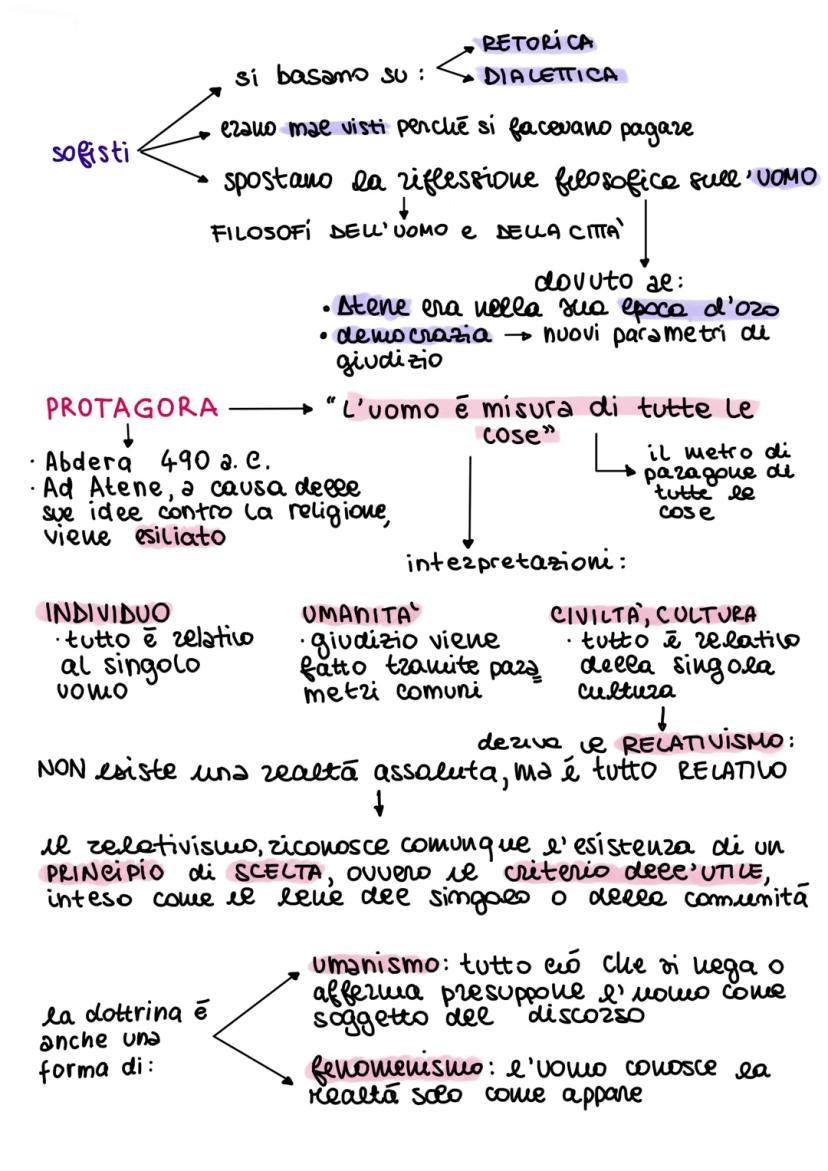 RETORICA
si basano su :
DIALETTICA
erano mal visti perché si facevano pagare
sofisti
spostano la riflessione filosofica sull'UOMO
FILOSOFI DELL'UOMO e DELLA CITTÀ
dovuto al:
• Atene era nella sua epoca d'oro
• democrazia → nuovi parametri di
giudizio
PROTAGORA → "L'uomo é misura di tutte le
cose"
· Abdera 490 a.C.
· Ad Atene, a causa delle
sue idee contro la religione,
viene esiliato
il metro di
paragone di
tutte le
cose
interpretazioni :
INDIVIDUO
· tutto é relativo
al singolo
uomo
UMANITA'
· giudizio viene
fatto tramite para
metri comuni
CIVILTA', CULTURA
· tutto é relativo
della singola
cultura
deriva il RELATIVISMO :
NON esiste una realtá assoluta, ma é tutto RELATIVO
il relativismo, riconosce comunque l'esistenza di un
PRINCIPIO di SCELTA, ovvero il criterio dell'UTILE,
inteso come il bene del singolo o della comunitá
umanismo: tutto ció che si nega o
afferma presuppone l'uomo come
soggetto del discorso
la dottrina é
anche una
forma di :
fenomenismo : l'uomo conosce la
realtá solo come appare